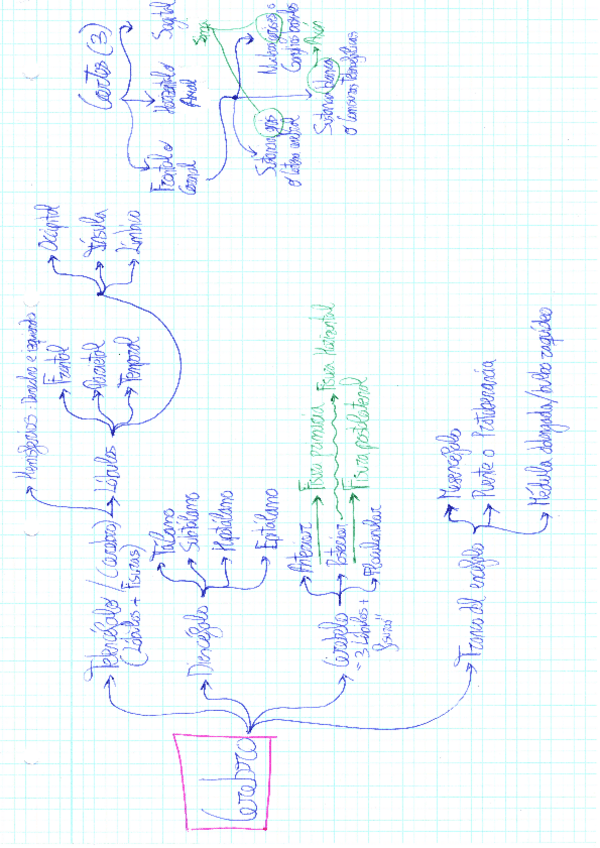 Cerebro
Telencéfalo / (Cerebro)
(Lóbulos + Fisuras)
Hemisferios: Derecho e izquierdo
Lóbulos
Frontal
Parietal
Temporal
Occipital
Ínsula
Límbico
Diencéfalo
Tálamo
Subtálamo
Hipotálamo
Epitálamo
Cerebelo
= 3 lóbulos +
Anterior
Posterior
Floculonodular
Fisura primaria
Fisura Horizontal
Fisura postlateral
Tronco del encéfalo
Mesencéfalo
Puente o Protuberancia
Médula alargada/bulbo raquídeo
Cortes (3)
Frontal o
Coronal
Horizontal
Axial
Sagital
Sustancia gris
Soma
Sustancia blanca
Axón